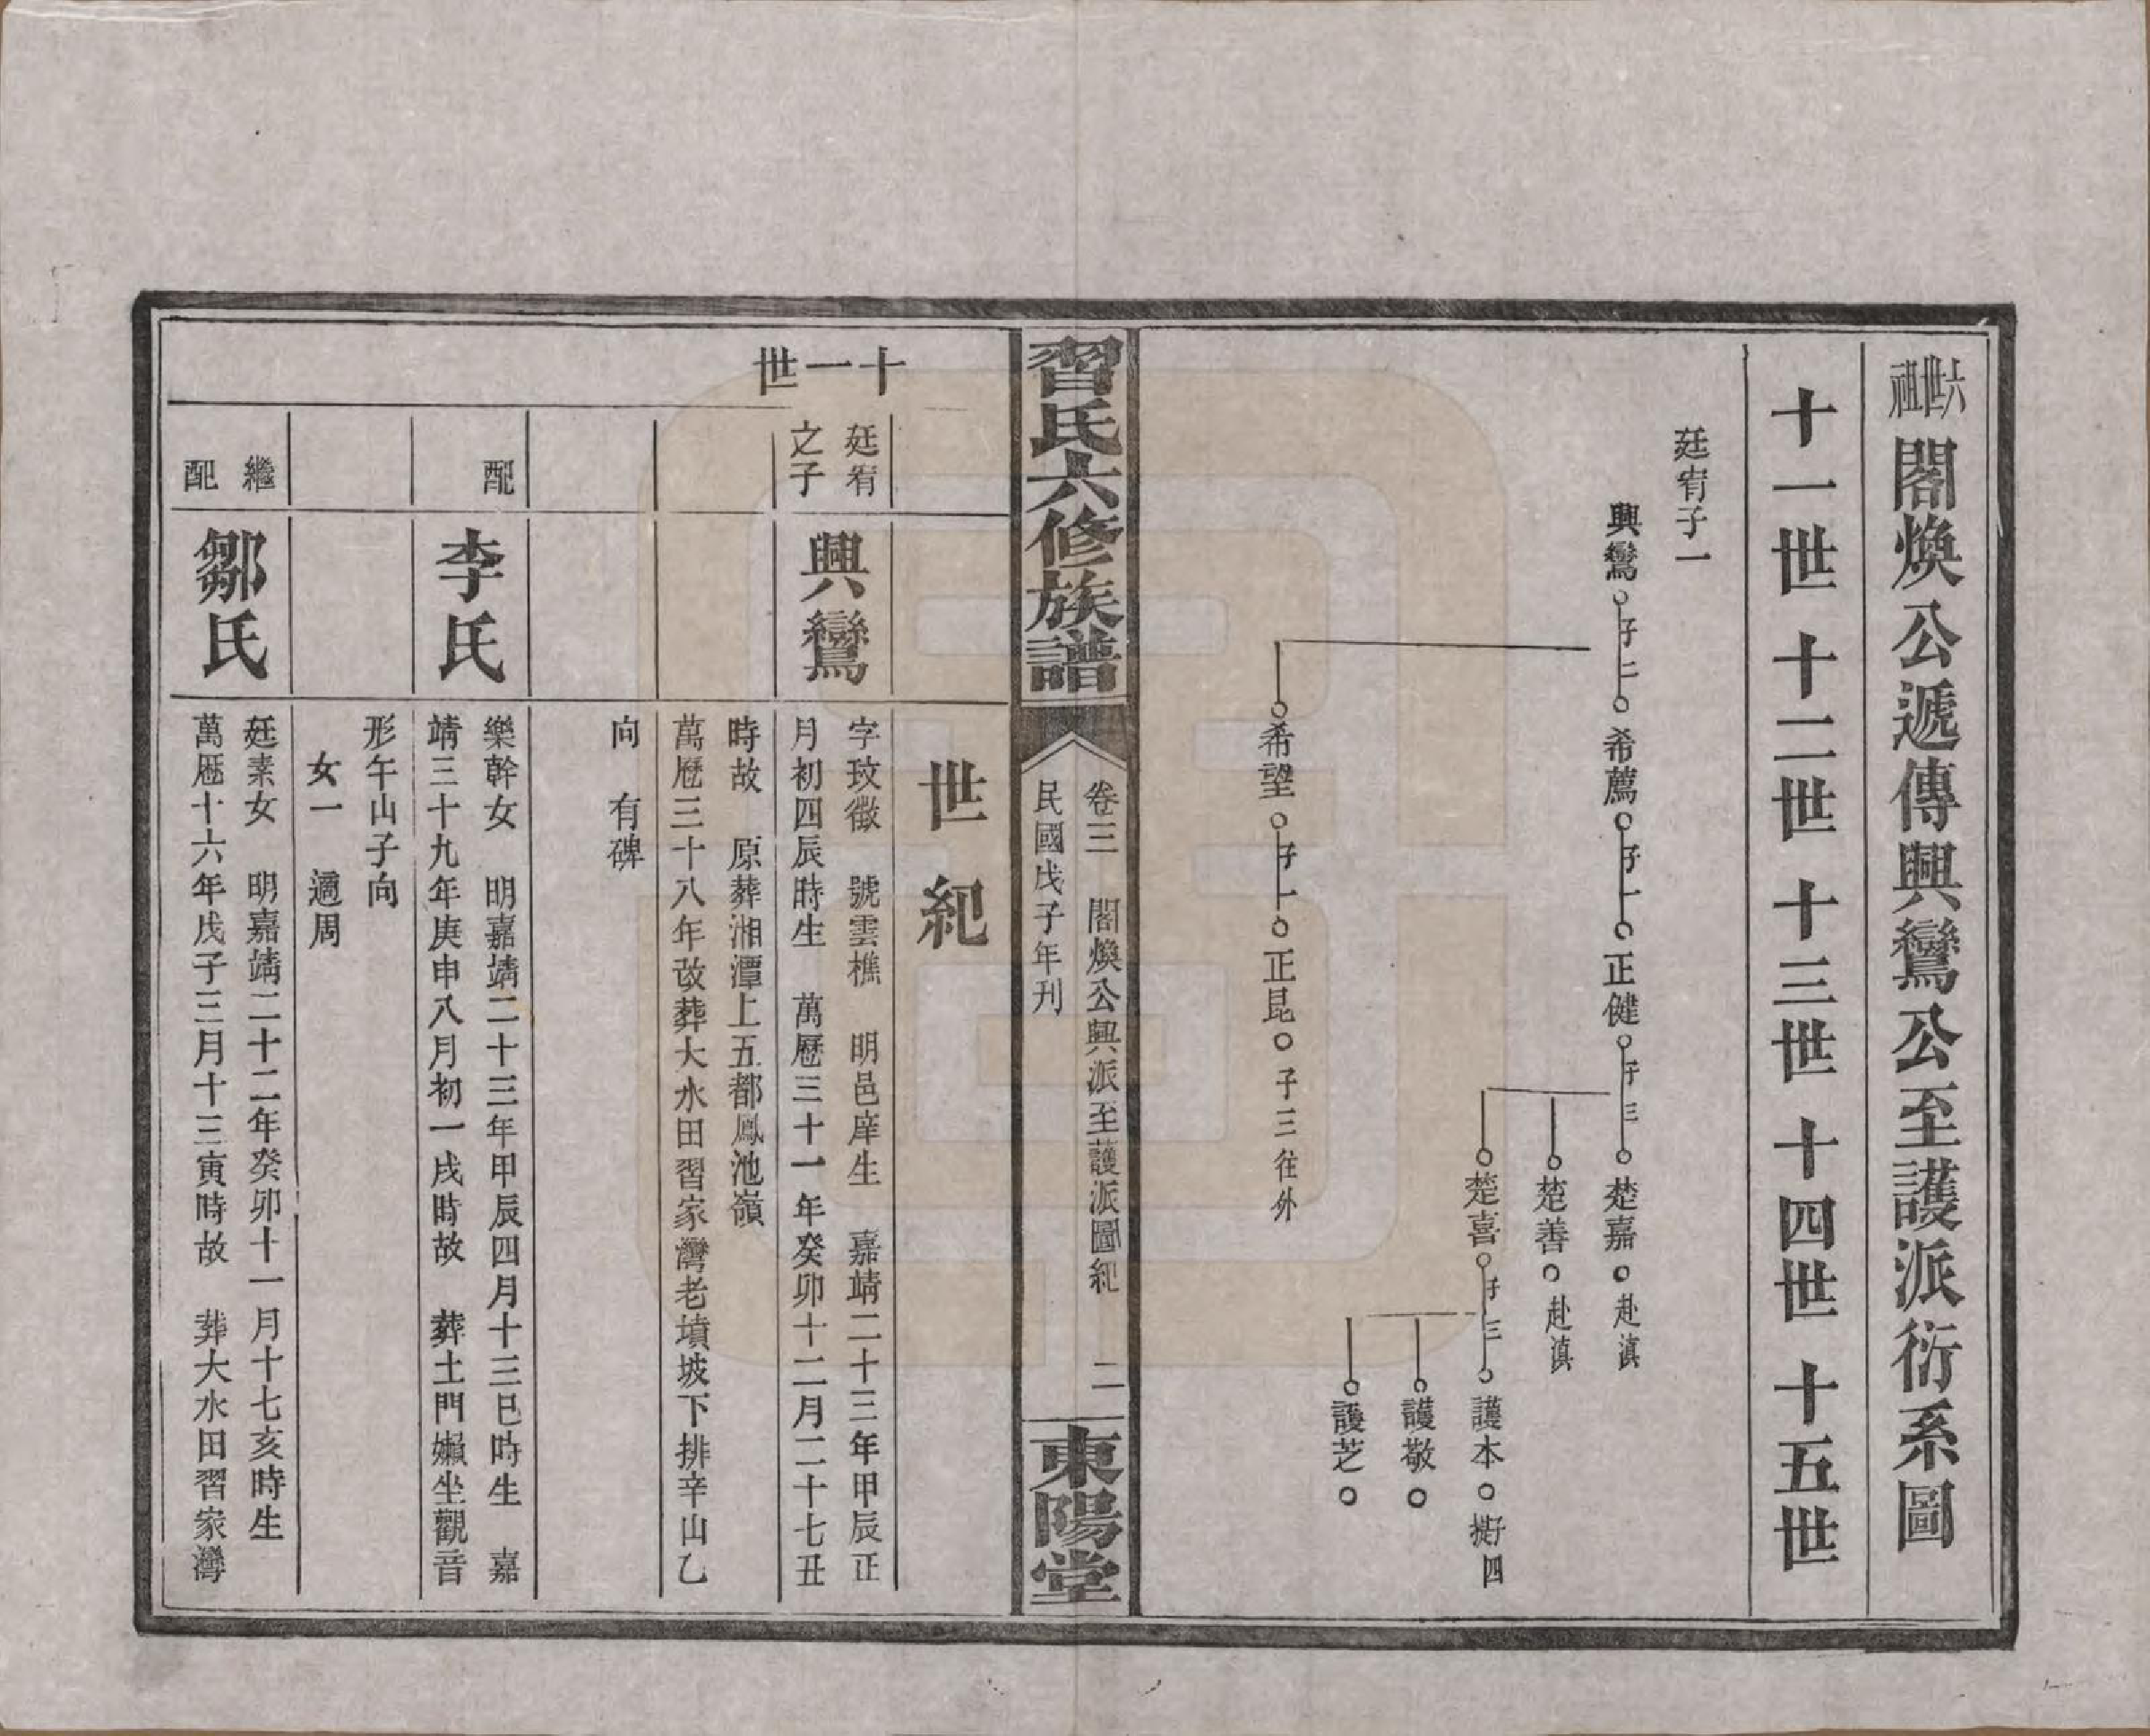 六世祖閣煥公遞傳興鸞公至護派衍系圖
十一世 十二世 十三世 十四世 十五世
廷宥子一
興鸞 子二 希薦 子一 正健 子三 楚嘉 赴滇
楚善 赴滇
楚喜 子三 護本 子四
護敬
護芝
希望 子一 正昆 子三往外
習氏六修族譜
卷三 閣煥公興派至護派圖紀 二
民國戊子年刊
東陽堂
世紀
十一世
廷宥
之子
興鸞
字玟徽 號雲樵 明邑庠生 嘉靖二十三年甲辰正
月初四辰時生 萬歷三十一年癸卯十二月二十七丑
時故 原葬湘潭上五都鳳池嶺
萬歷三十八年改葬大水田習家灣老墳坡下排辛山乙
向 有碑
配
李氏
樂幹女 明嘉靖二十三年甲辰四月十三巳時生 嘉
靖三十九年庚申八月初一戌時故 葬土門嬾坐觀音
形午山子向
女一 適周
繼
配
鄒氏
廷素女 明嘉靖二十二年癸卯十一月十七亥時生
萬歷十六年戊子三月十三寅時故 葬大水田習家灣